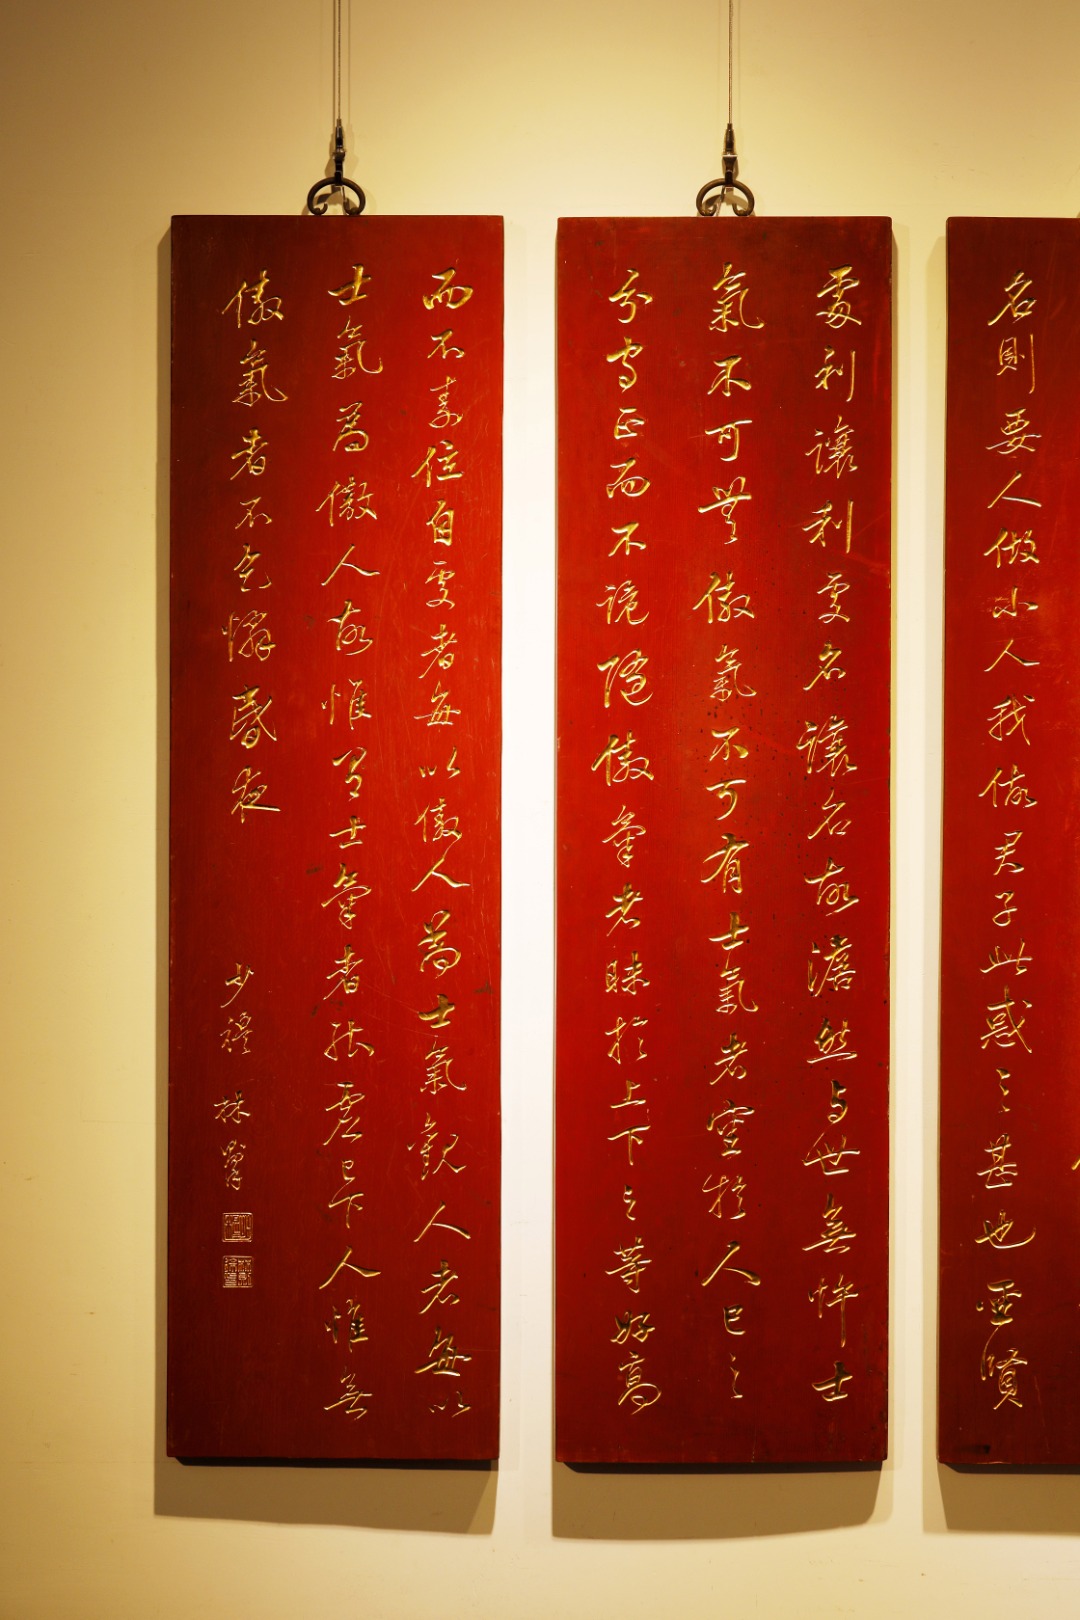 名則要人做小人我做君子此惑之甚也聖賢
處利讓利處名讓名故澹然与世無忤士
氣不可無傲氣不可有士氣者空於人己之
分守正而不詭隨傲氣者昧於上下之等好高
而不素位自處者每以傲人為士氣觀人者每以
士氣為傲人故惟有士氣者能虛己下人惟無
傲氣者不乞憐昏夜
少穆 林